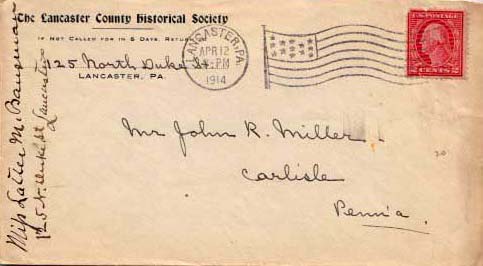 The Lancaster County Historical Society
IF NOT CALLED FOR IN 5 DAYS, RETURN
125 North Duke St.
LANCASTER, PA.
LANCASTER, PA.
APR 12
PM
1914
U.S. POSTAGE
2 CENTS 2
Mr John R. Miller
Carlisle
Penn'a.
Miss M. Bausman
125 N. Duke St Lancaster
20